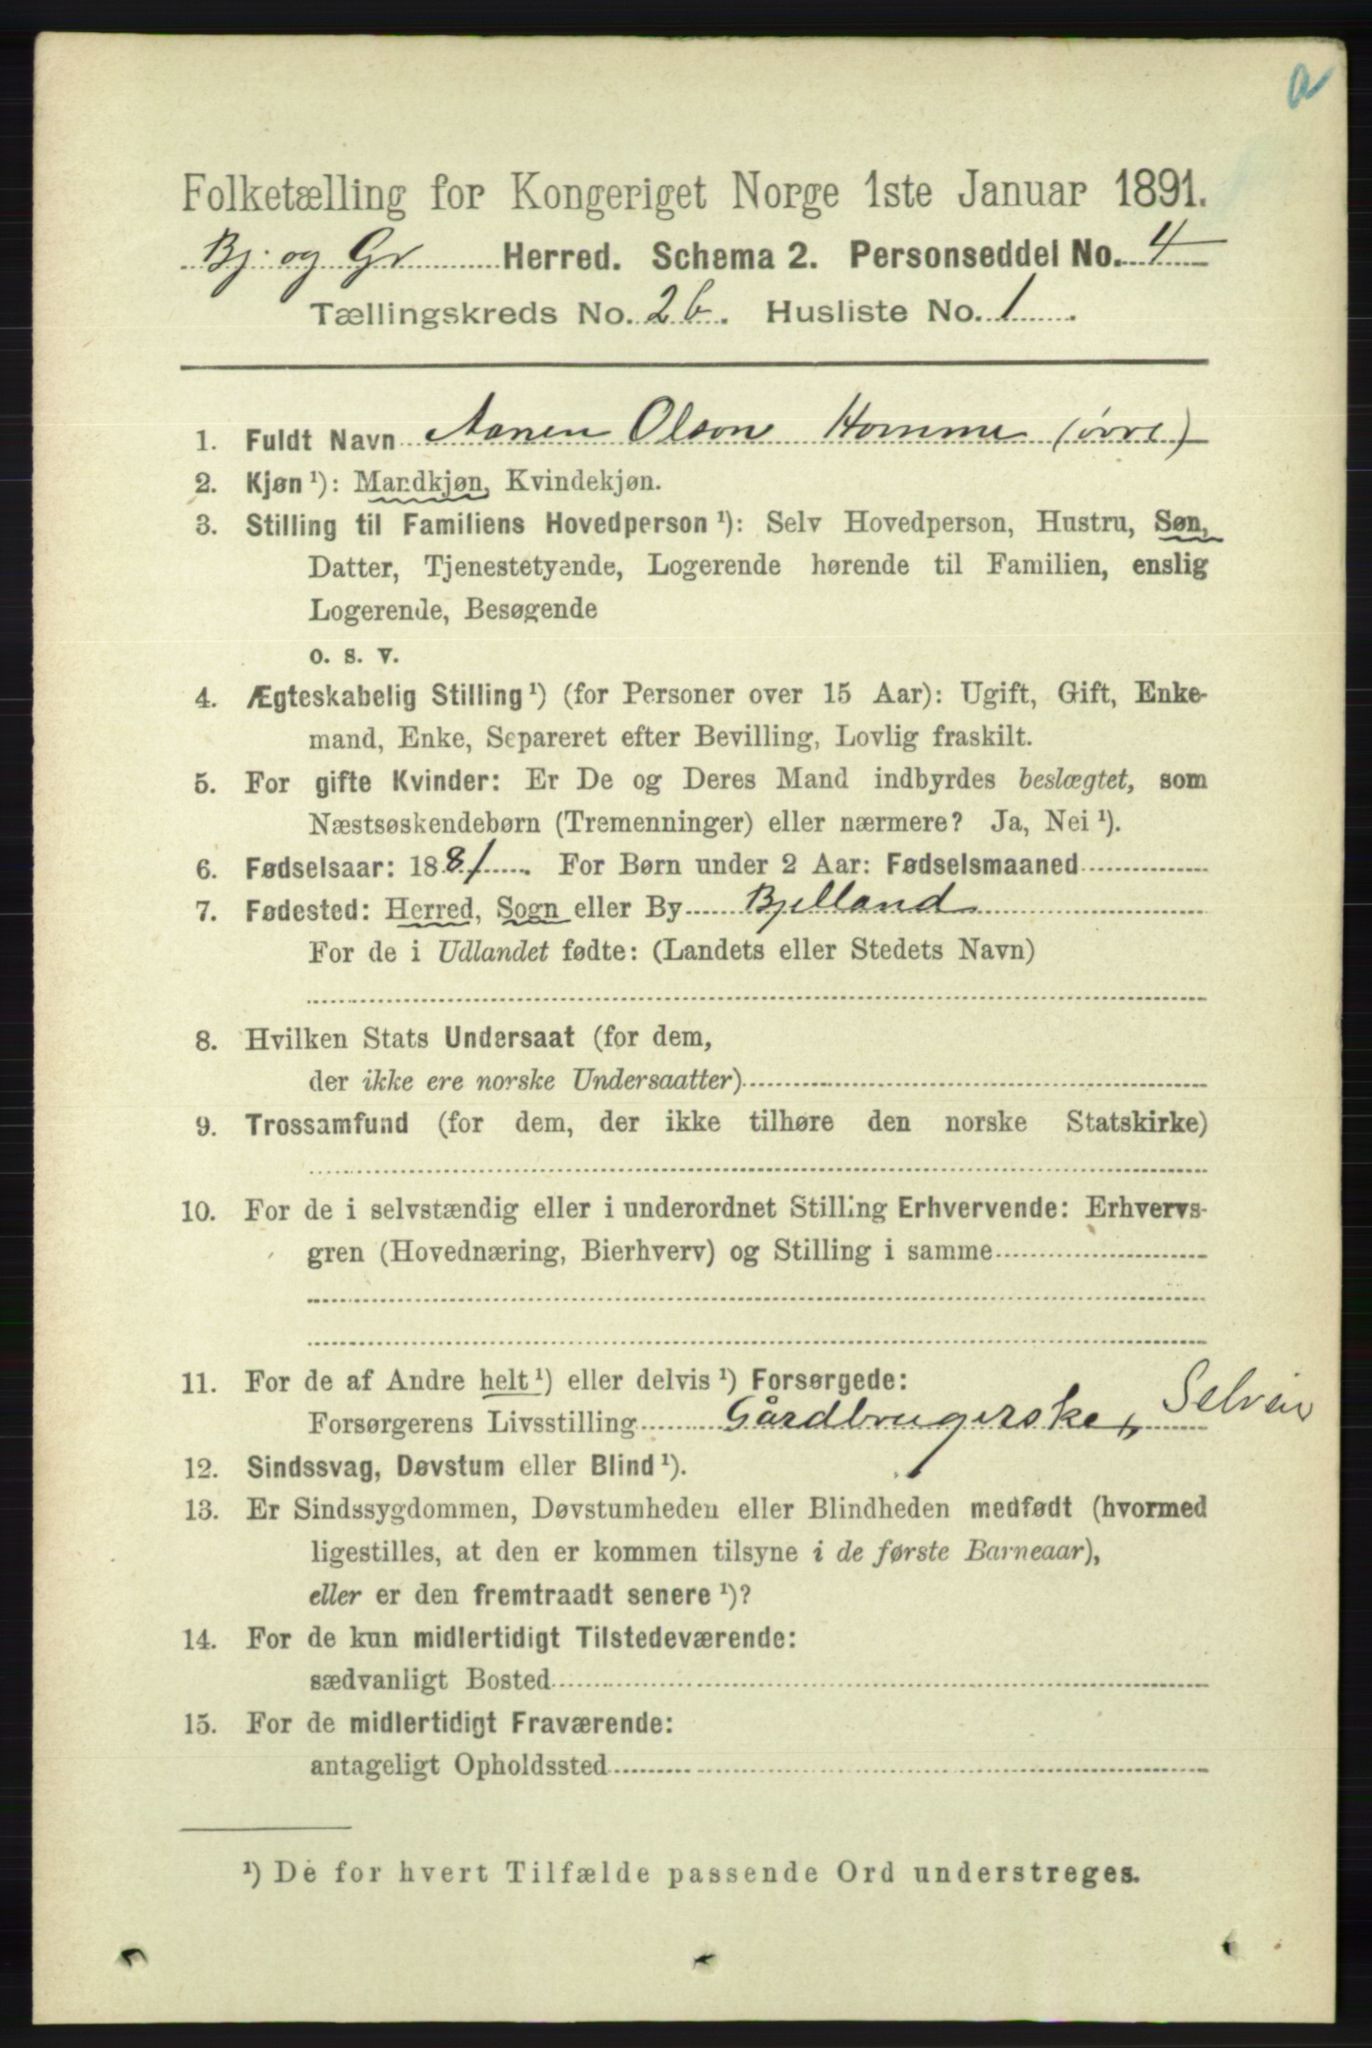 a
Folketælling for Kongeriget Norge 1ste Januar 1891.
Bj. og Gr Herred. Schema 2. Personseddel No. 4
Tællingskreds No. 2b. Husliste No. 1.
1. Fuldt Navn Aanen Olson Homme (övre)
2. Kjøn ¹): Mandkjøn, Kvindekjøn.
3. Stilling til Familiens Hovedperson ¹): Selv Hovedperson, Hustru, Søn,
Datter, Tjenestetyende, Logerende hørende til Familien, enslig
Logerende, Besøgende
o. s. v.
4. Ægteskabelig Stilling ¹) (for Personer over 15 Aar): Ugift, Gift, Enke-
mand, Enke, Separeret efter Bevilling, Lovlig fraskilt.
5. For gifte Kvinder: Er De og Deres Mand indbyrdes beslægtet, som
Næstsøskendebørn (Tremenninger) eller nærmere? Ja, Nei ¹).
6. Fødselsaar: 1881. For Børn under 2 Aar: Fødselsmaaned
7. Fødested: Herred, Sogn eller By Bjelland
For de i Udlandet fødte: (Landets eller Stedets Navn)
8. Hvilken Stats Undersaat (for dem,
der ikke ere norske Undersaatter)
9. Trossamfund (for dem, der ikke tilhøre den norske Statskirke)
10. For de i selvstændig eller i underordnet Stilling Erhvervende: Erhvervs-
gren (Hovednæring, Bierhverv) og Stilling i samme
11. For de af Andre helt ¹) eller delvis ¹) Forsørgede:
Forsørgerens Livsstilling Gårdbrugerske, Selveier
12. Sindssvag, Døvstum eller Blind ¹).
13. Er Sindssygdommen, Døvstumheden eller Blindheden medfødt (hvormed
ligestilles, at den er kommen tilsyne i de første Barneaar),
eller er den fremtraadt senere ¹)?
14. For de kun midlertidigt Tilstedeværende:
sædvanligt Bosted
15. For de midlertidigt Fraværende:
antageligt Opholdssted
¹) De for hvert Tilfælde passende Ord understreges.